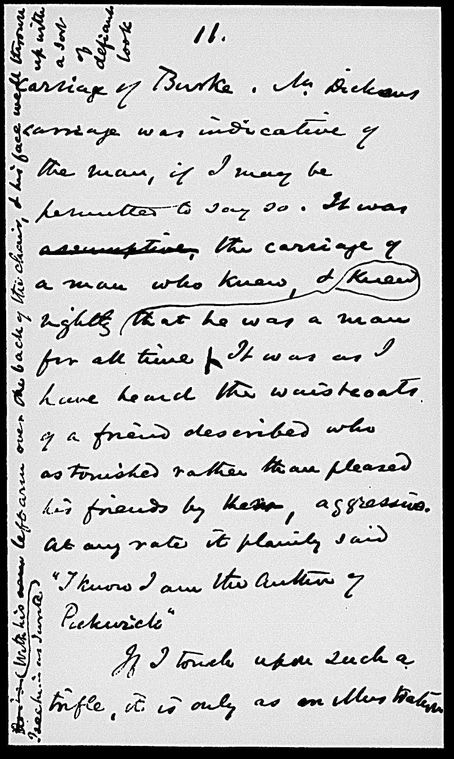 11.
carriage of Burke. Mr Dickens
carriage was indicative of
the man, if I may be
permitted to say so. It was
assumptive, the carriage of
a man who knew, & knew
rightly that he was a man
for all time It was as I
have heard the waistcoats
of a friend described who
astonished rather than pleased
his friends by them, aggressive.
At any rate it plainly said
"I know I am the Author of
Pickwick"
If I touch upon such a
trifle, it is only as an illustration
(With his left arm over the back of the chair, & his face well thrown
up with
a sort
of
defiant
look